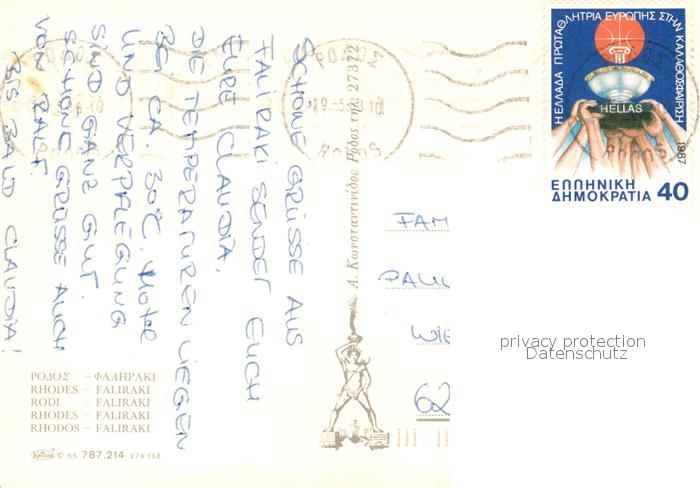 SCHÖNE GRÜSSE AUS
FALIRAKI SENDET EUCH
EURE CLAUDIA.
DIE TEMPERATUREN LIEGEN
BEI CA. 30°C. HOTEL
UND VERPFLEGUNG
SIND GANZ GUT.
SCHÖNE GRÜSSE AUCH
VON RALF.
BIS BALD CLAUDIA!
ΡΟΔΟΣ – ΦΑΛΗΡΑΚΙ
RHODES – FALIRAKI
RODI – FALIRAKI
RHODES – FALIRAKI
RHODOS – FALIRAKI
© 55 787.214 274 138
Α. Κωνσταντινίδου Ρόδος τηλ. 27372
ΡΟΔΟΣ
RODOS
Η ΕΛΛΑΔΑ ΠΡΩΤΑΘΛΗΤΡΙΑ ΕΥΡΩΠΗΣ ΣΤΗΝ ΚΑΛΑΘΟΣΦΑΙΡΙΣΗ
HELLAS
1987
ΕΛΛΗΝΙΚΗ
ΔΗΜΟΚΡΑΤΙΑ 40
FAM
PAUL
WIE
62
privacy protection
Datenschutz